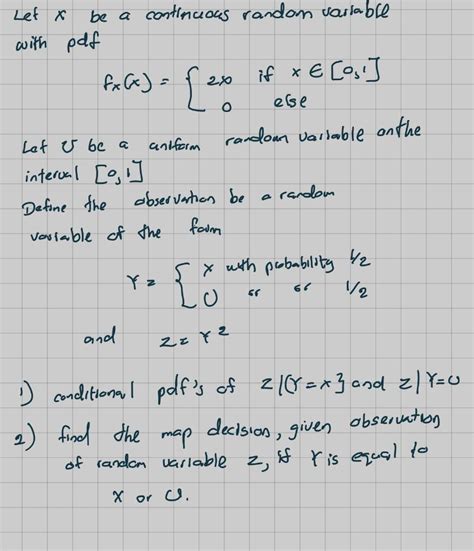 Let x be a continuous random variable
with pdf
fx(x) = { 2x if x ∈ [0,1]
0 else
Let U be a uniform random variable on the
interval [0,1]
Define the observation be a random
variable of the form
Y = { x with probability 1/2
U " " 1/2
and Z = Y²
1) conditional pdf's of Z|{Y=x} and Z|Y=U
2) find the map decision, given observation
of random variable Z, if Y is equal to
x or U.